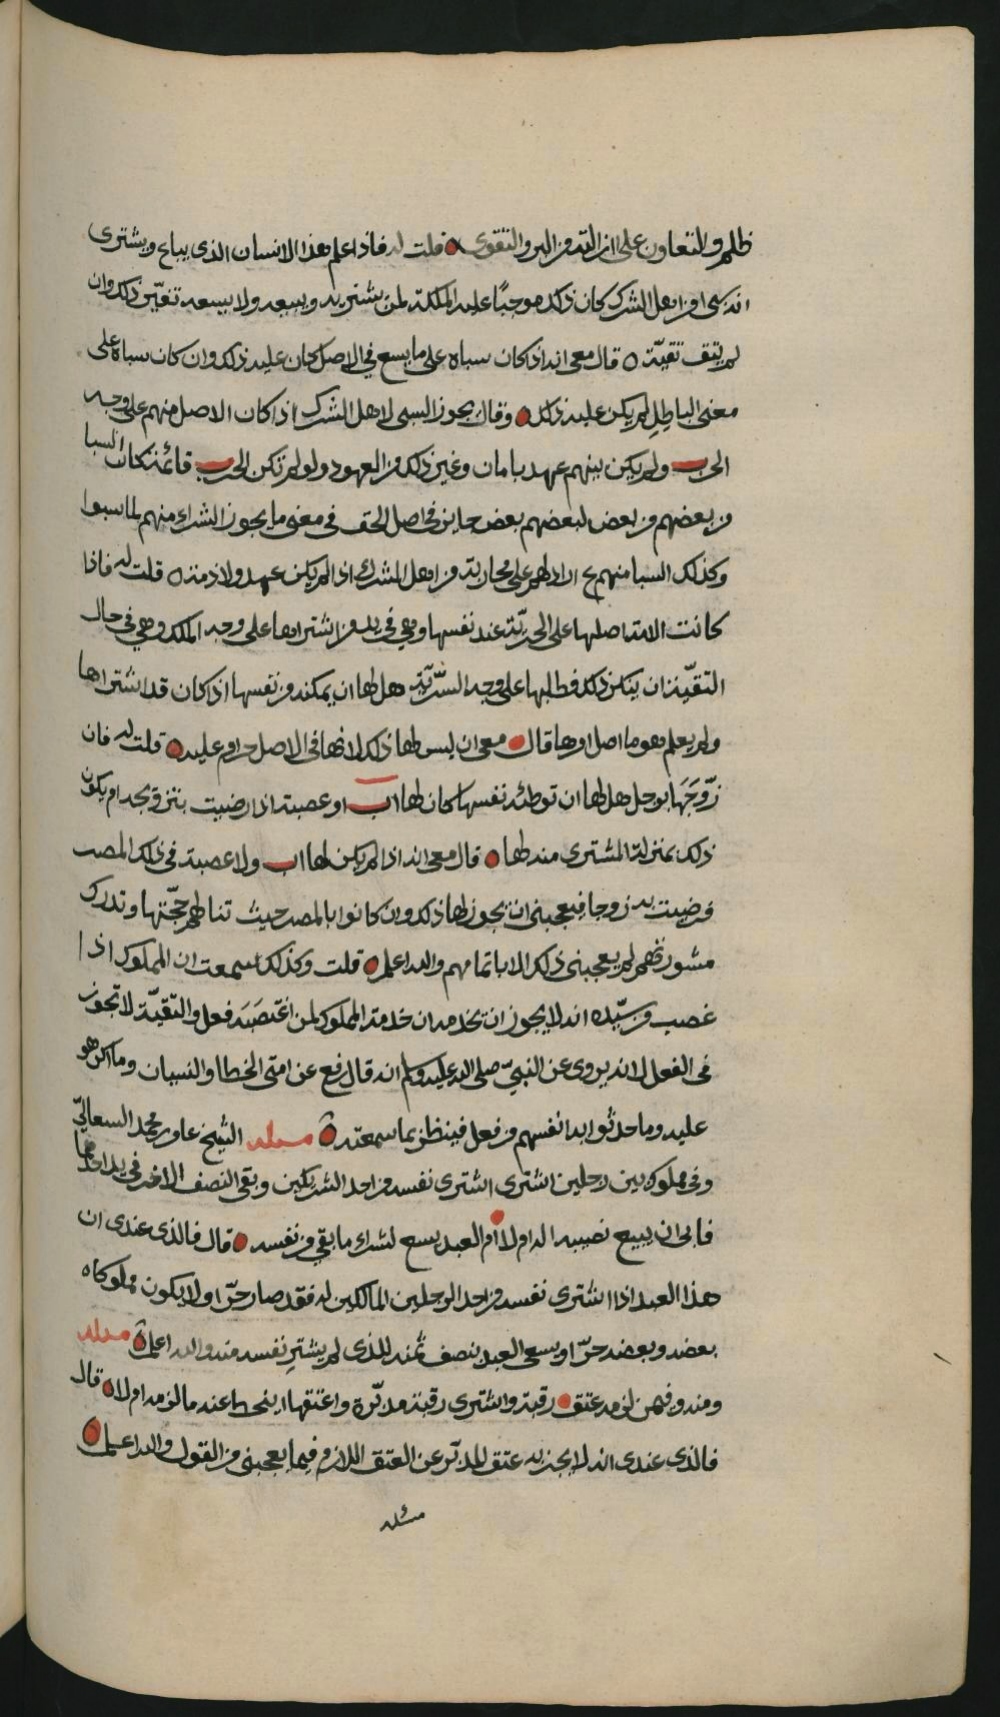 ظلم والتعاون على ازالته من البر والتقوى قلت له فاذا علم هذا الانسان الذى يباع ويشترى
انه سبى من اهل الشرك كان ذلك موجبًا عليه الملكة لمن يشتريه ويبيعه ولا يسعه تغيّر ذلك وان
لم يتق تقيّة قال معى انه اذا كان سباه على ما يسع فى الاصل كان عليه ذلك وان كان سباه على
معنى الباطل لم يكن عليه ذلك وقال يجوز السبى لاهل الشرك اذا كان الاصل منهم على وجه
الحرب ولم يكن بينهم عهد بامان وغير ذلك من العهود ولو لم تكن الحرب قائمة كان السبا
من بعضهم من بعض لبعضهم بعض جايز فى اصل الحق فى معنى ما يجوز الشراء منهم لما سبوا
وكذلك السبا منهم محاربة من اهل الشرك اذا لم يكن عهد ولا ذمة قلت له فاذا
كانت الامة اصلها على الحريّة عند نفسها وهى فى يد من اشتراها على وجه الملك وهى فى حال
التقيّة ان ينكر ذلك فطالبها على وجه السرّيّة هل لها ان يمكنه من نفسها اذا كان قد اشتراها
ولم يعلم هو ما اصل امرها قال معى ان ليس لها ذلك لانها فى الاصل حرام عليه قلت له فان
زوّجَهَا برجل هل لها ان توطئه نفسها كان لها اب او عصبة اذا رضيت بتزويجه ام يكون
ذلك بمنزلة المشترى منه لها قال معى انه اذا لم يكن لها اب ولا عصبة فى ذلك المصر
فرضيت به زوجا فيعجبنى ان يجوز لها ذلك وان كانوا بالمصر حيث تنالهم حجّتها وتدرك
مشورتهم لم يعجبنى ذلك الا باتمامهم والله اعلم قلت وكذلك سمعت ان المملوك اذا
غصب من سيّده انه لا يجوز ان يخدم لان خدمة المملوك لمن اغتصَبَه فعل والتقيّة لا تجوز
فى الفعل لانه يروى عن النبىّ صلى الله عليه وسلم انه قال رفع عن امتى الخطا والنسيان وما اكرهو
عليه وما حدثوا به انفسهم من فعل فينظر بما سمعته مسئلة الشيخ عامر محمد السعالىّ
وفى مملوك بين رجلين اشترى اشترى نفسه من احد الشريكين وبقى النصف الاخر فى يد احدهما
فابى ان يبيع نصيبه اله ام لا أم العبد يسع لشراء ما بقى من نفسه قال فالذى عندى ان
هذا العبد اذا اشترى نفسه من احد الرجلين المالكين له فقد صار حرّا ولا يكون مملوكا
بعضه وبعضه حرّ او يسعى العبد بنصف ثمنه للذى لم يشترِ نفسه منه والله اعلم مسئلة
ومنه وفيمن لزمه عتق رقبة واشترى رقبة مدبّرة واعتقها ايحط عنه ما لزمه ام لا قال
فالذى عندى انه لا يجزيه عتق المدبّر عن العتق اللازم فيما يعجبنى من القول والله اعلم
مسئلة